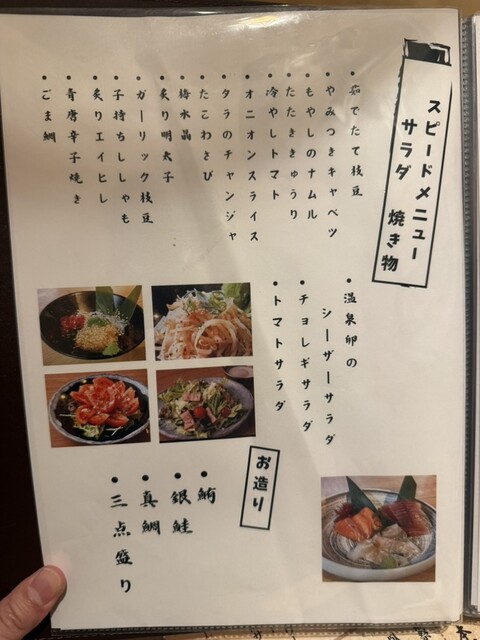 スピードメニュー
サラダ 焼き物
・茹でたて枝豆
・やみつきキャベツ
・もやしのナムル
・たたききゅうり
・冷やしトマト
・オニオンスライス
・タラのチャンジャ
・たこわさび
・梅水晶
・炙り明太子
・ガーリック枝豆
・子持ちししゃも
・炙りエイヒレ
・青唐辛子焼き
・ごま鯛
・温泉卵の
シーザーサラダ
・チョレギサラダ
・トマトサラダ
お造り
・鮪
・銀鮭
・真鯛
・三点盛り